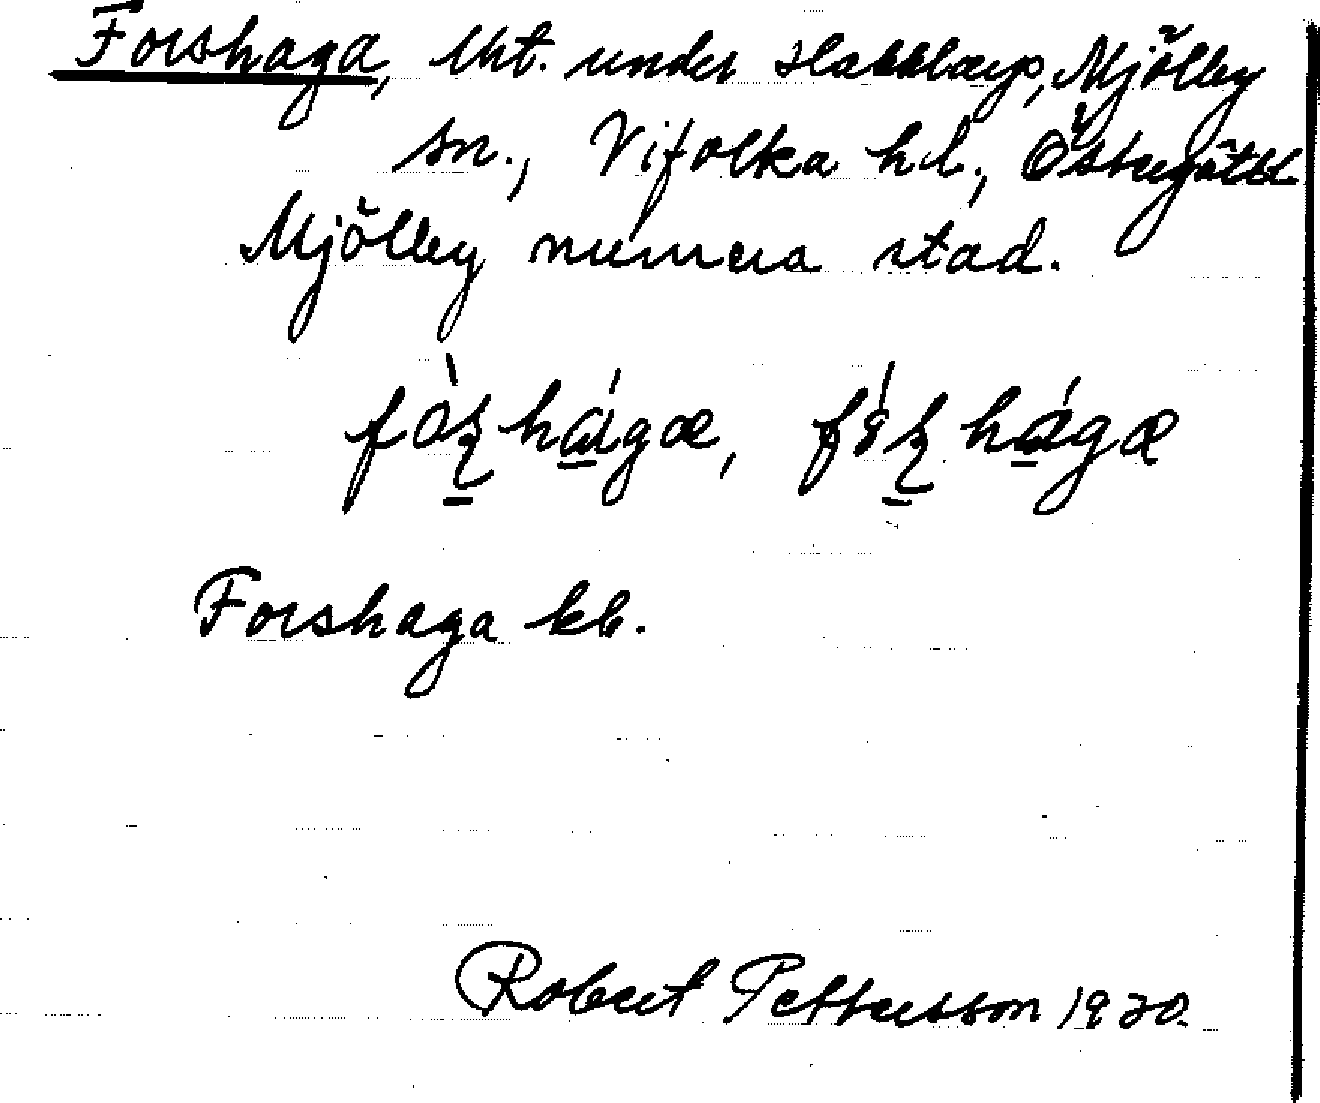 Forshaga, lht. under Slakkarp, Mjölby
sn., Vifolka hd., Östergötl
Mjölby numera stad.
Forshaga kb.
Robert Pettersson 1930.